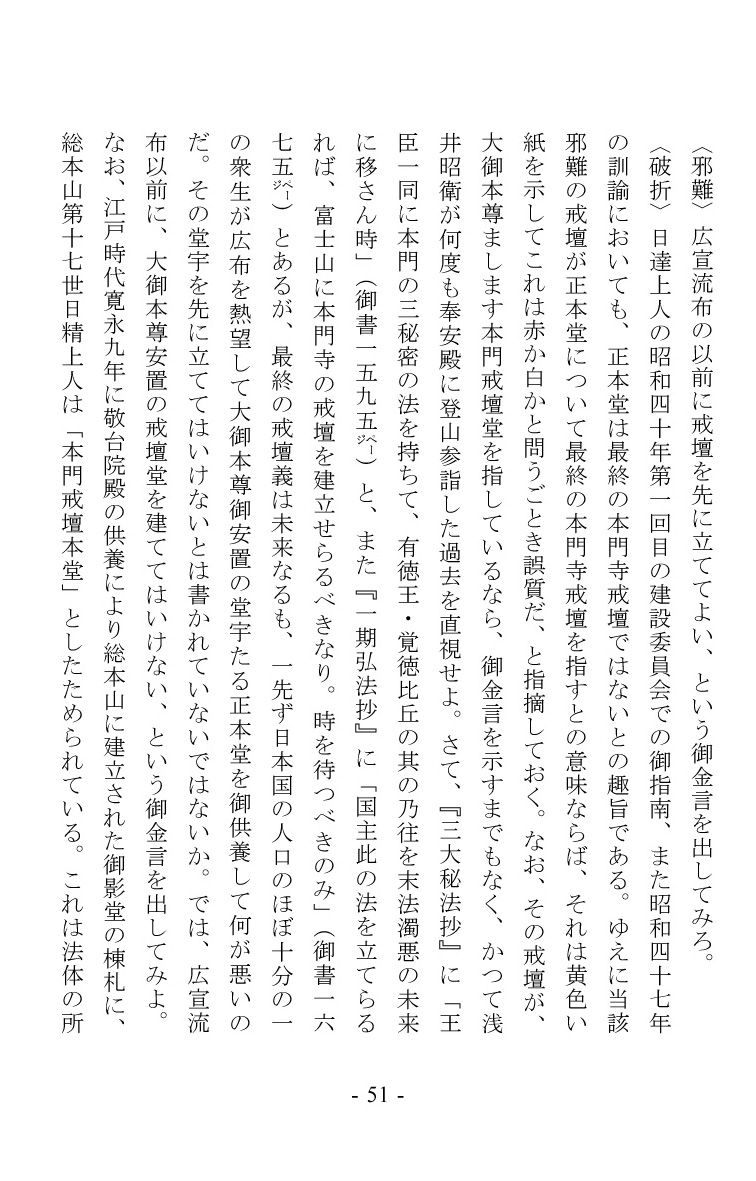 〈邪難〉広宣流布の以前に戒壇を先に立ててよい、という御金言を出してみろ。
〈破折〉日達上人の昭和四十年第一回目の建設委員会での御指南、また昭和四十七年
の訓諭においても、正本堂は最終の本門寺戒壇ではないとの趣旨である。ゆえに当該
邪難の戒壇が正本堂について最終の本門寺戒壇を指すとの意味ならば、それは黄色い
紙を示してこれは赤か白かと問うごとき誤質だ、と指摘しておく。なお、その戒壇が、
大御本尊まします本門戒壇堂を指しているなら、御金言を示すまでもなく、かつて浅
井昭衛が何度も奉安殿に登山参詣した過去を直視せよ。さて、『三大秘法抄』に「王
臣一同に本門の三秘密の法を持ちて、有徳王・覚徳比丘の其の乃往を末法濁悪の未来
に移さん時」（御書一五九五㌻）と、また『一期弘法抄』に「国主此の法を立てらる
れば、富士山に本門寺の戒壇を建立せらるべきなり。時を待つべきのみ」（御書一六
七五㌻）とあるが、最終の戒壇義は未来なるも、一先ず日本国の人口のほぼ十分の一
の衆生が広布を熱望して大御本尊御安置の堂宇たる正本堂を御供養して何が悪いの
だ。その堂宇を先に立ててはいけないとは書かれていないではないか。では、広宣流
布以前に、大御本尊安置の戒壇堂を建ててはいけない、という御金言を出してみよ。
なお、江戸時代寛永九年に敬台院殿の供養により総本山に建立された御影堂の棟札に、
総本山第十七世日精上人は「本門戒壇本堂」としたためられている。これは法体の所
- 51 -